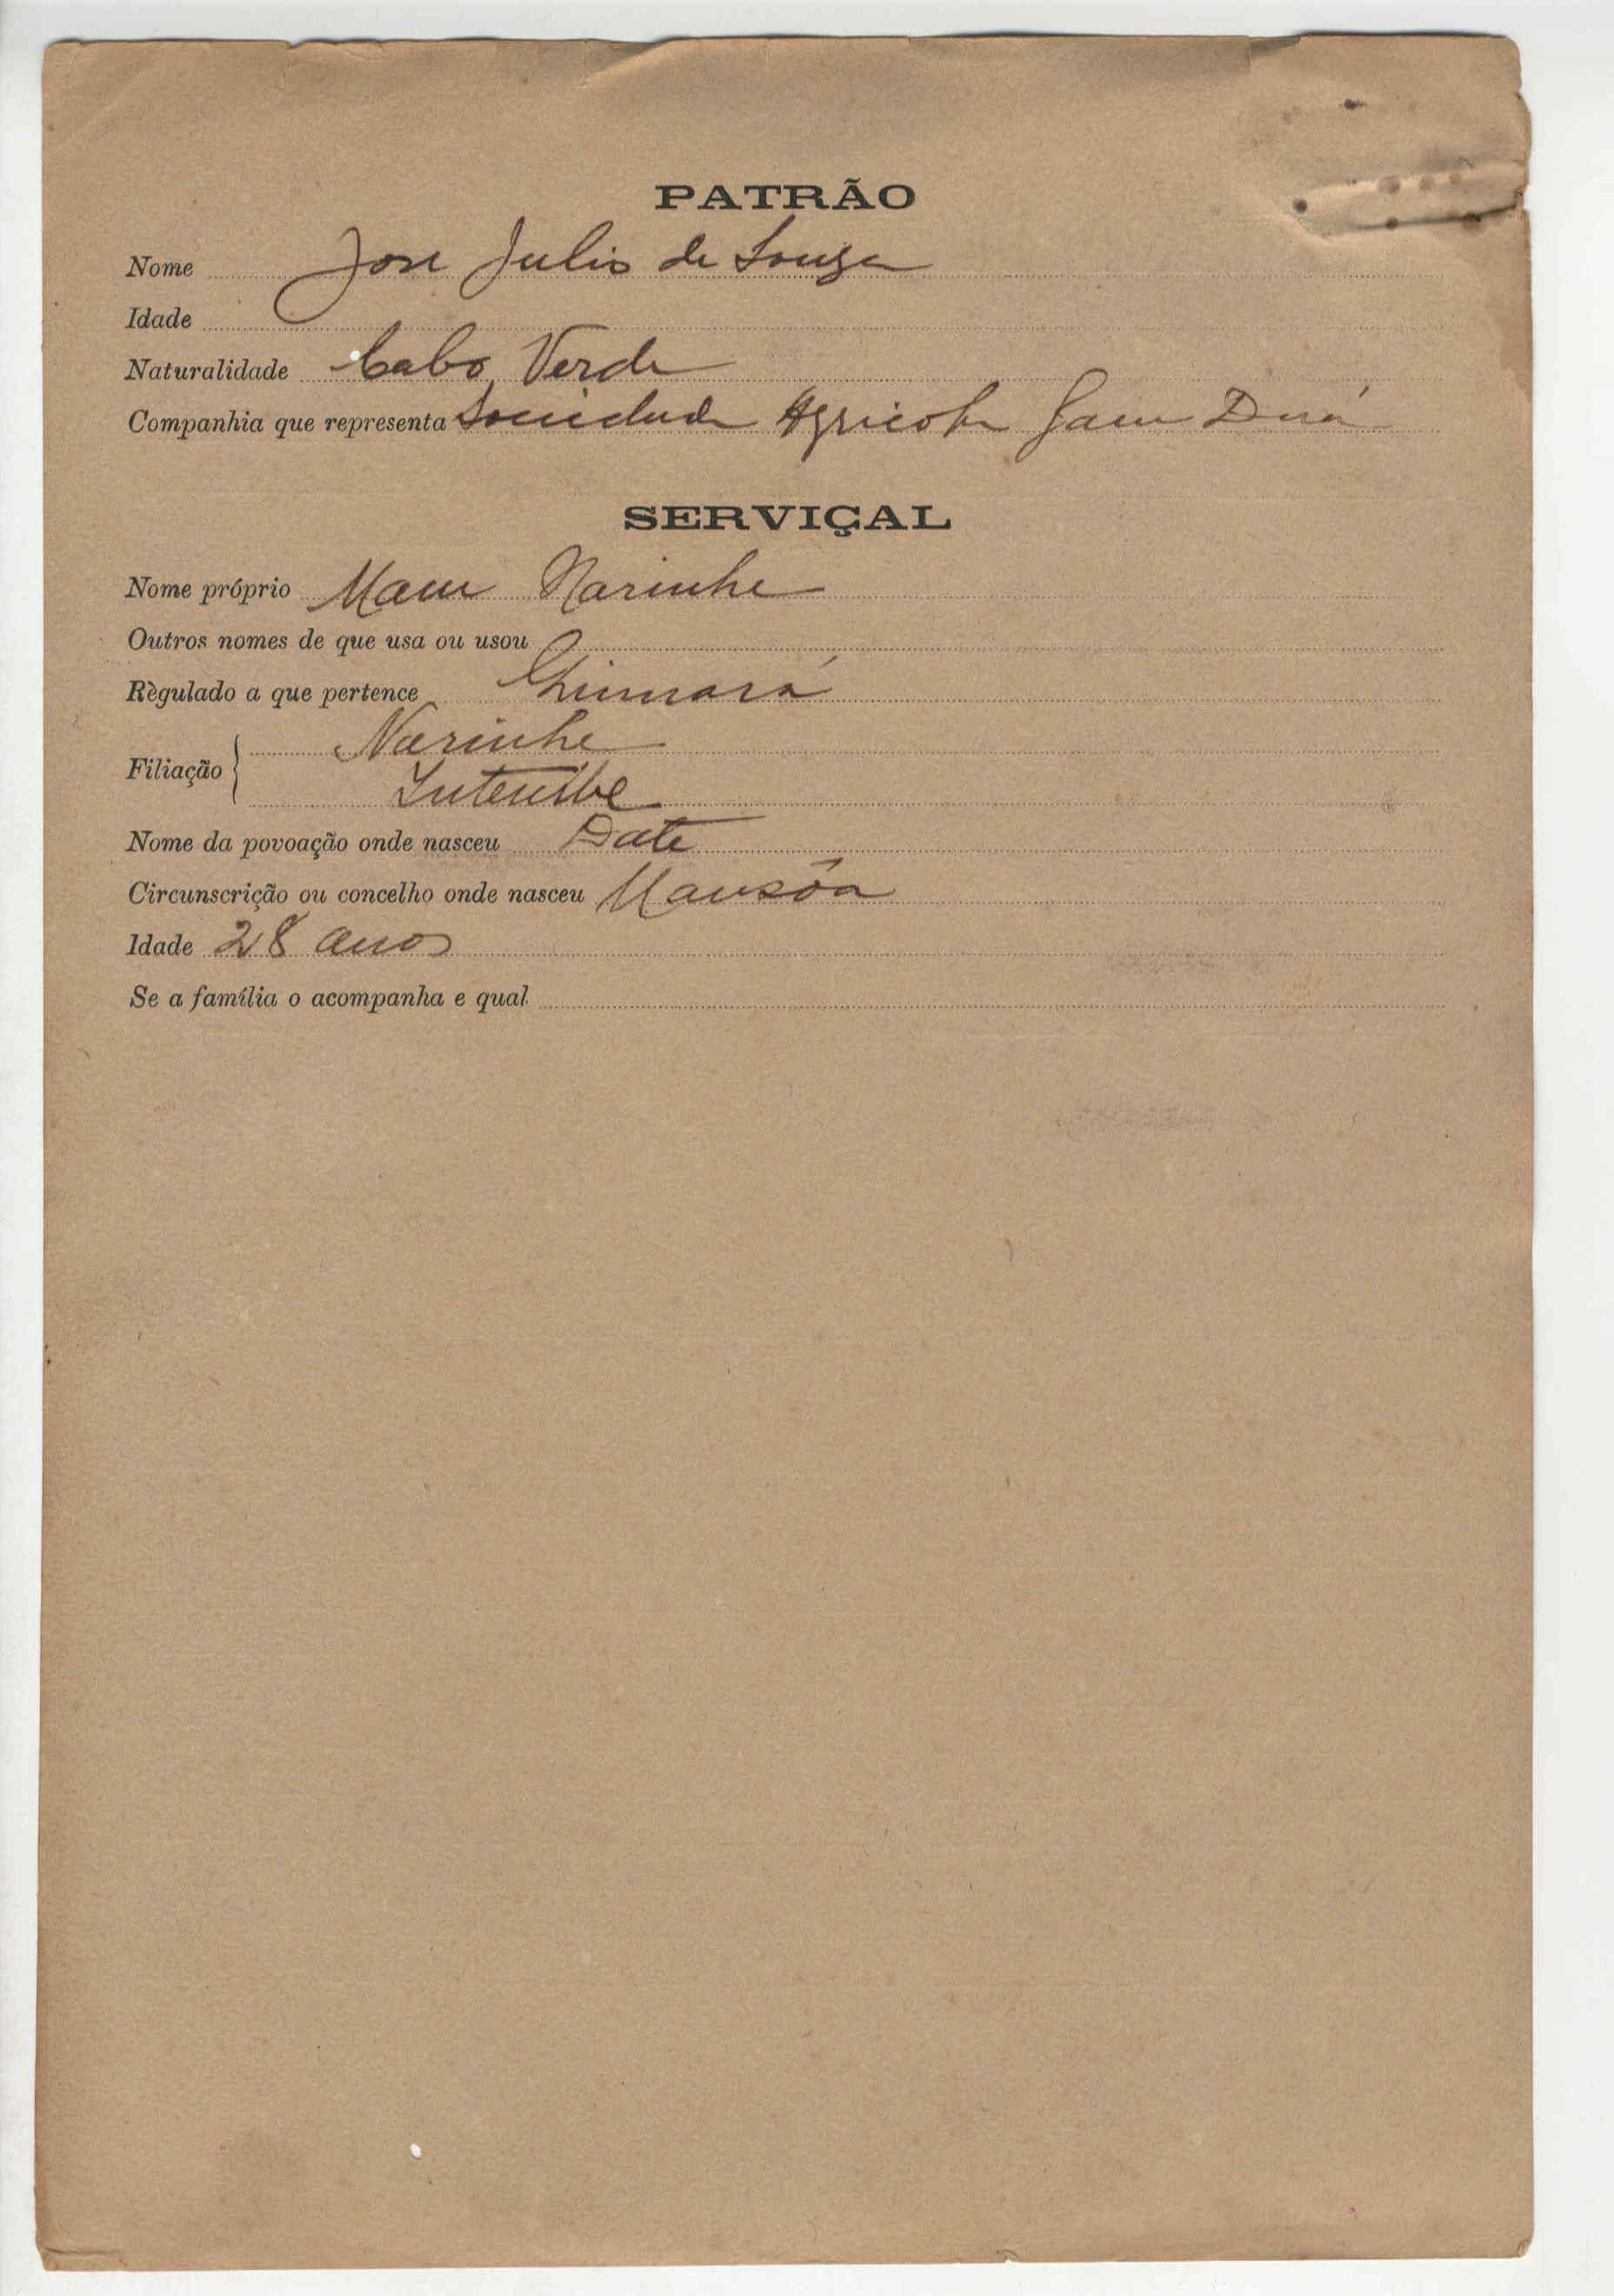 PATRÃO
Nome Jose Julio de Souza
Idade
Naturalidade Cabo Verde
Companhia que representa Sociedade Agricola Gam Duá
SERVIÇAL
Nome próprio Mam Narinhe
Outros nomes de que usa ou usou
Règulado a que pertence
Filiação Narinhe
Nome da povoação onde nasceu Date
Circunscrição ou concelho onde nasceu Mansôa
Idade 28 anos
Se a família o acompanha e qual